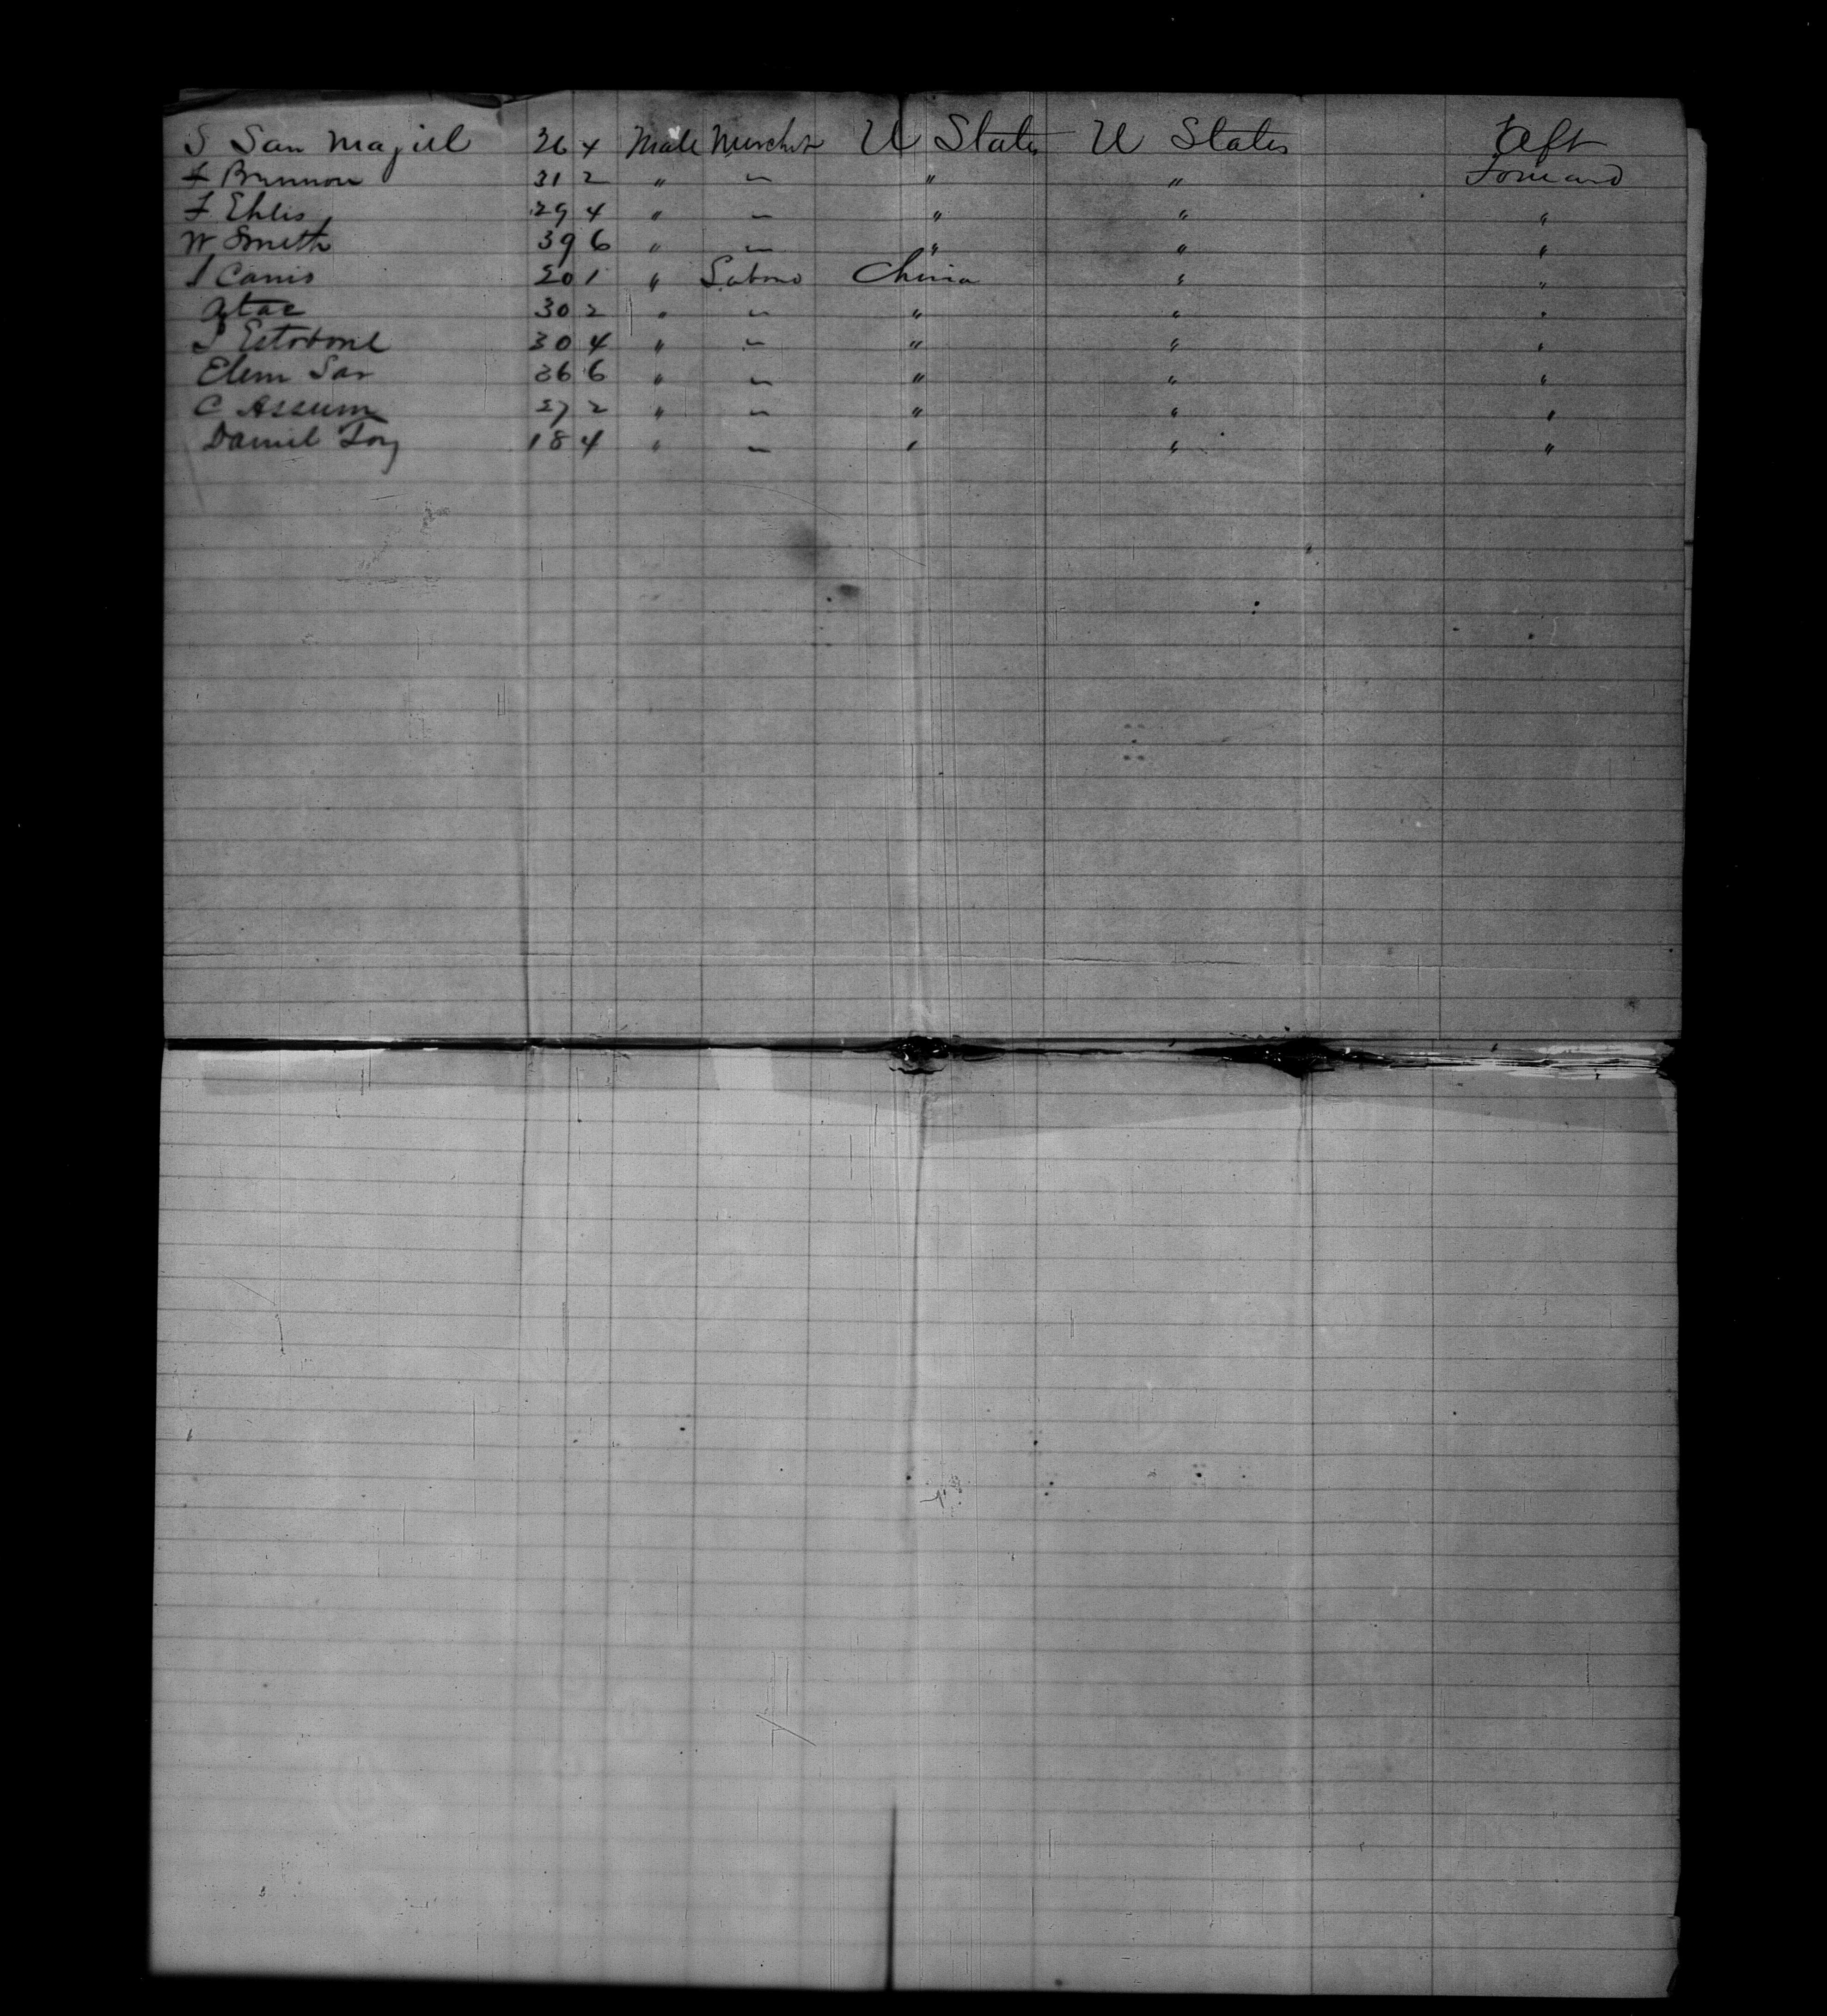 S San Magiel 36 4 Male Merchet U States U States Aft
F Brunnon 31 2 " " " " Forward
F Ehlis 29 4 " " " " "
W Smith 39 6 " " " " "
S Canis 20 1 " Labono China " "
30 2 " " " " "
30 4 " " " " "
Elem Sar 36 6 " " " " "
C Assum 27 2 " " " " "
Daniel Toy 18 4 " " " " "